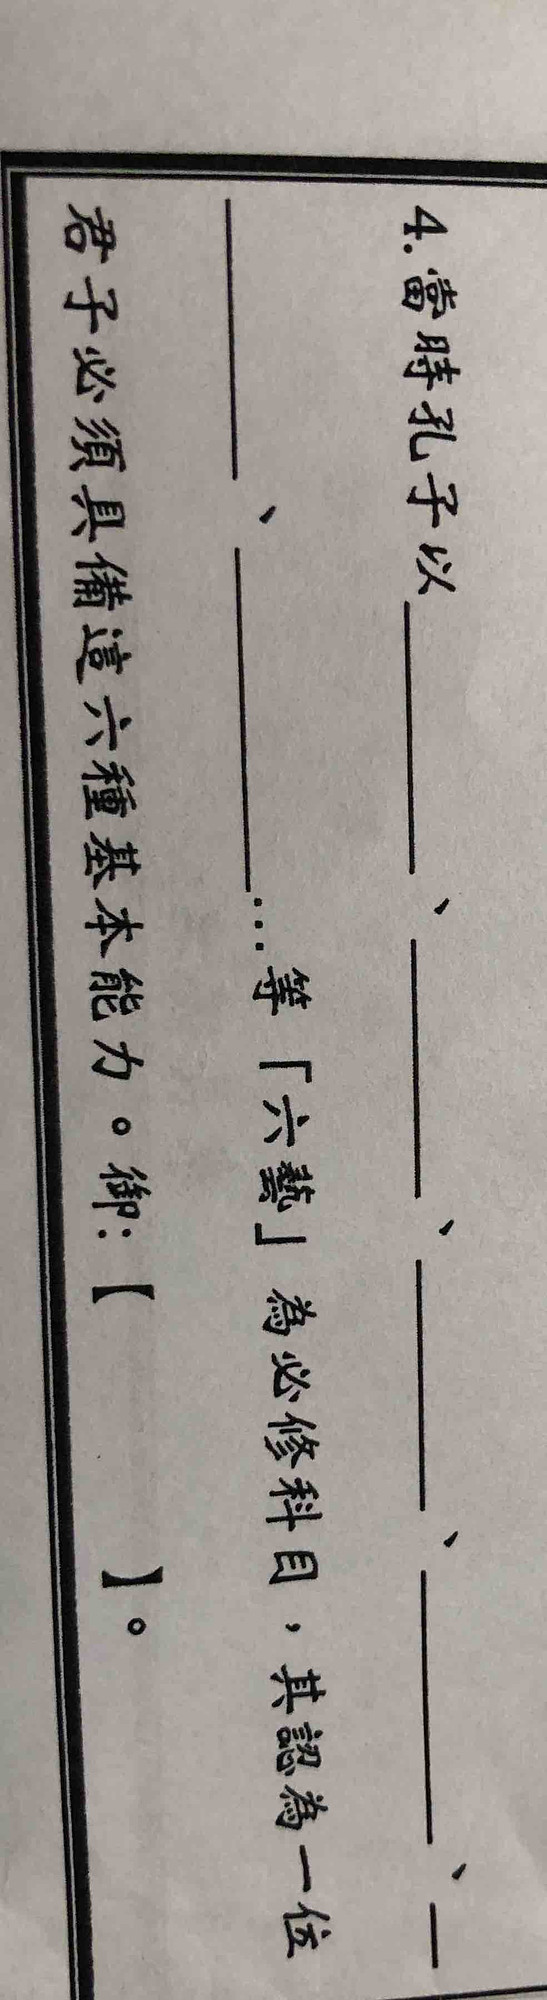 4.當時孔子以________、________、________、________、_
________、________…等「六藝」為必修科目，其認為一位
君子必須具備這六種基本能力。御:【 】。